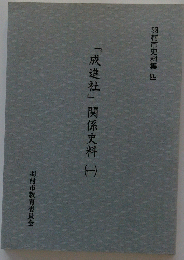 羽村市史料集 四
「成進社」関係史料 (一)
羽村市教育委員会